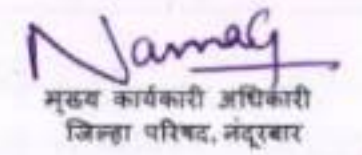 मुख्य कार्यकारी अधिकारी
जिल्हा परिषद, नंदूरबार